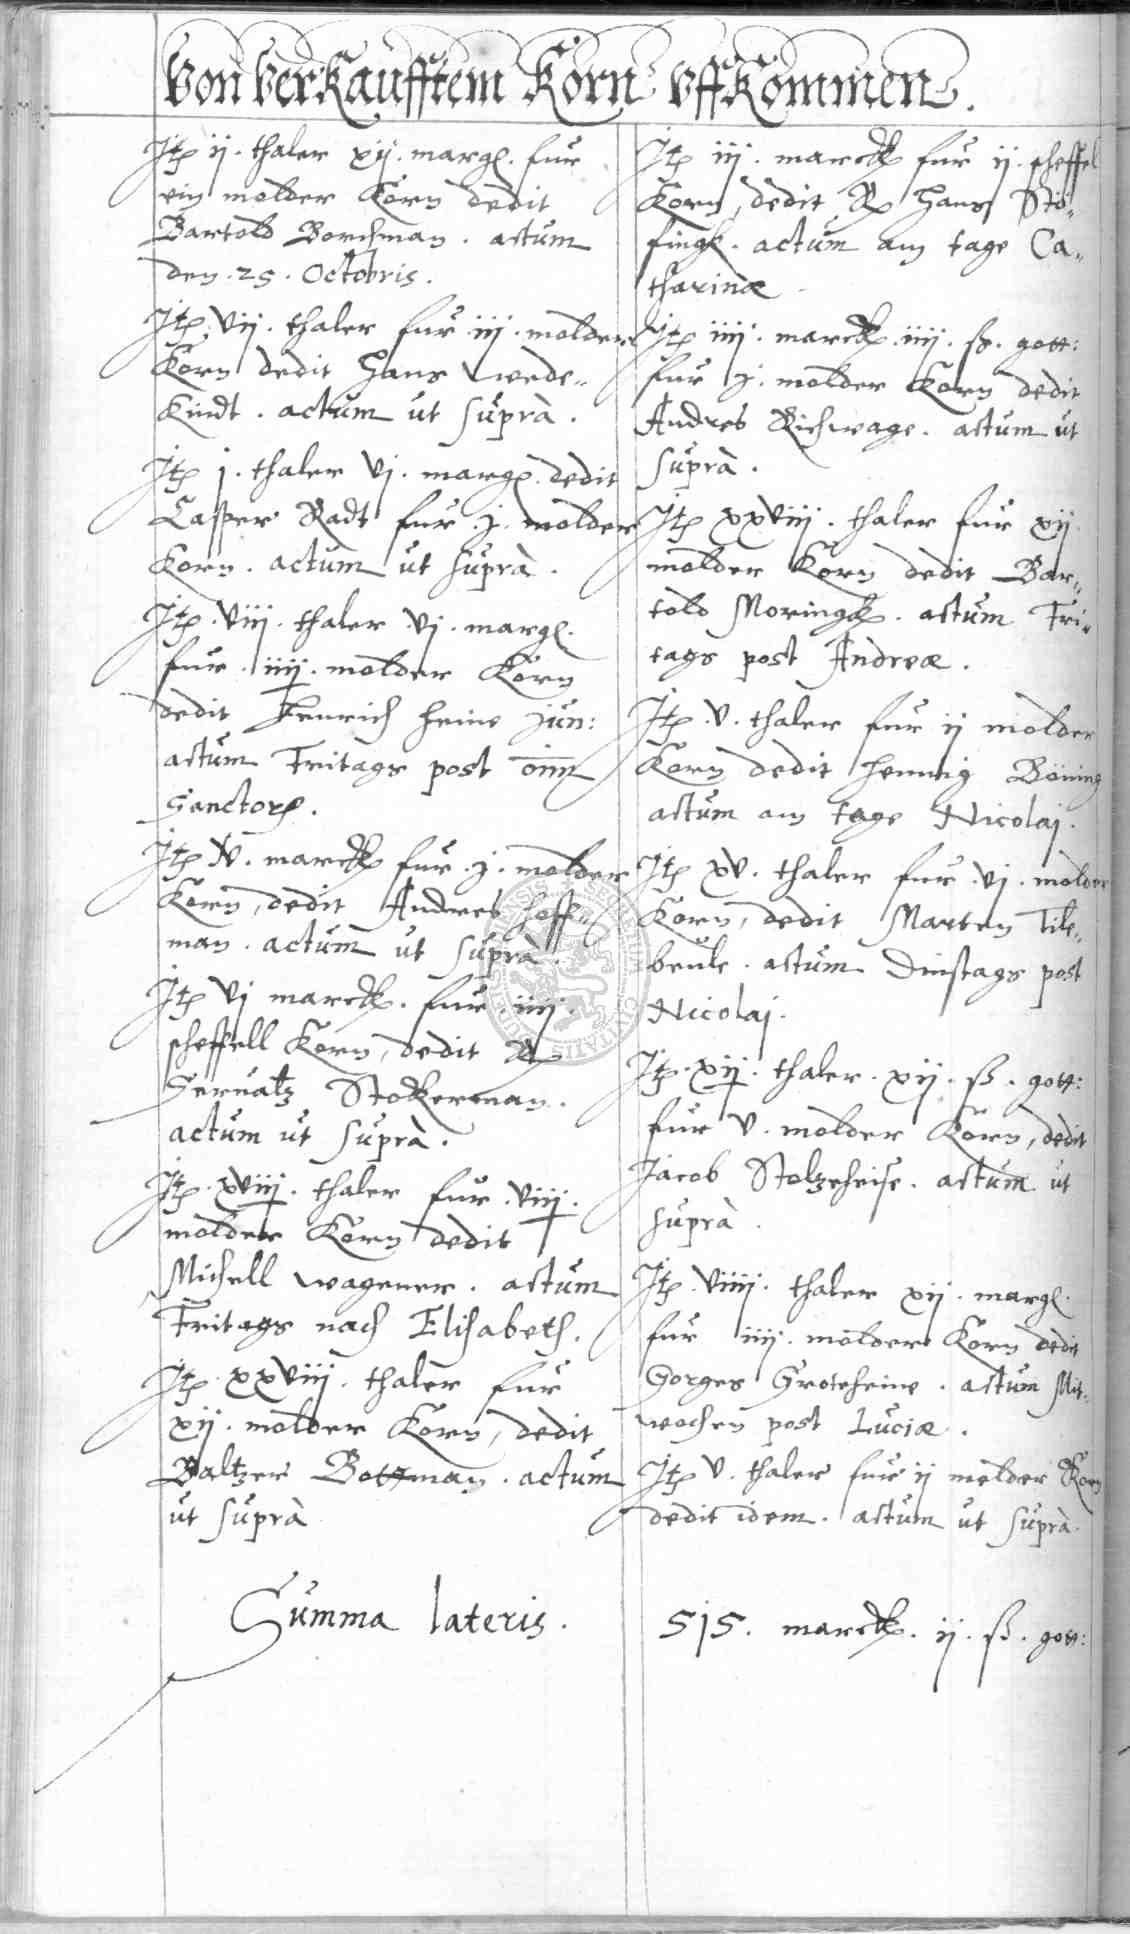 Von Verkaufftem Korn vffkommen.
Itē ij. thaler xij. margē. fur
ein molder Korn dedit
Bartold Borchman. actum
den. 25. Octobris.
Itē. vij. thaler fur iij. molder
Korn dedit Hans Wede=
kindt. actum ut suprà.
Itē j. thaler vj. margē. dedit
Casper Radt fur. j. molder
Korn. actum ut suprà.
Itē. viij. thaler vj. margē.
fur. iiij. molder Korn
dedit Henrich Heine jun:
actum Fritags post om̄
Sanctorē.
Itē v. marck fur. j. molder
Korn, dedit Andres Hoff=
man. actum ut suprà.
Itē vj marck. fur. iiij.
scheffell Korn, dedit R
Seruatz Stokerman.
actum ut suprà.
Itē. xviij. thaler fur. viij.
molder Korn dedit
Michell Wagener. actum
Fritags nach Elisabeth.
Itē. xxviij. thaler fur
xij. molder Korn, dedit
Baltzer Botzman. actum
ut suprà
Itē iij. marck fur ij. scheffel
Korn, dedit R Hans Stö=
fingk. actum am tage Ca=
tharinæ.
Itē iiij. marck. iiij. ß. gott:
fur j. molder Korn dedit
Andres Richwage. actum ut
suprà.
Itē xxviij. thaler fur xij
molder Korn dedit Bar=
told Moringk. actum Fri=
tags post Andreæ.
Itē. v. thaler fur ij molder
Korn dedit Hennig Böning
actum am tage Nicolaj.
Itē xv. thaler fur. vj. molder
Korn, dedit Marten Tile=
beule. actum Dinstags post
Nicolaj.
Itē. xij. thaler. xij. ß. gott:
fur v. molder Korn, dedit
Jacob Stoltzeheise. actum ut
suprà.
Itē. viiij. thaler xij. margē.
fur iiij. molder Korn dedit
Gorges Groteheine. actum Mit=
wochen post Luciæ.
Itē v. thaler fur ij molder Korn
dedit idem. actum ut suprà.
Summa lateris. 515. marck. ij. ß. gott: